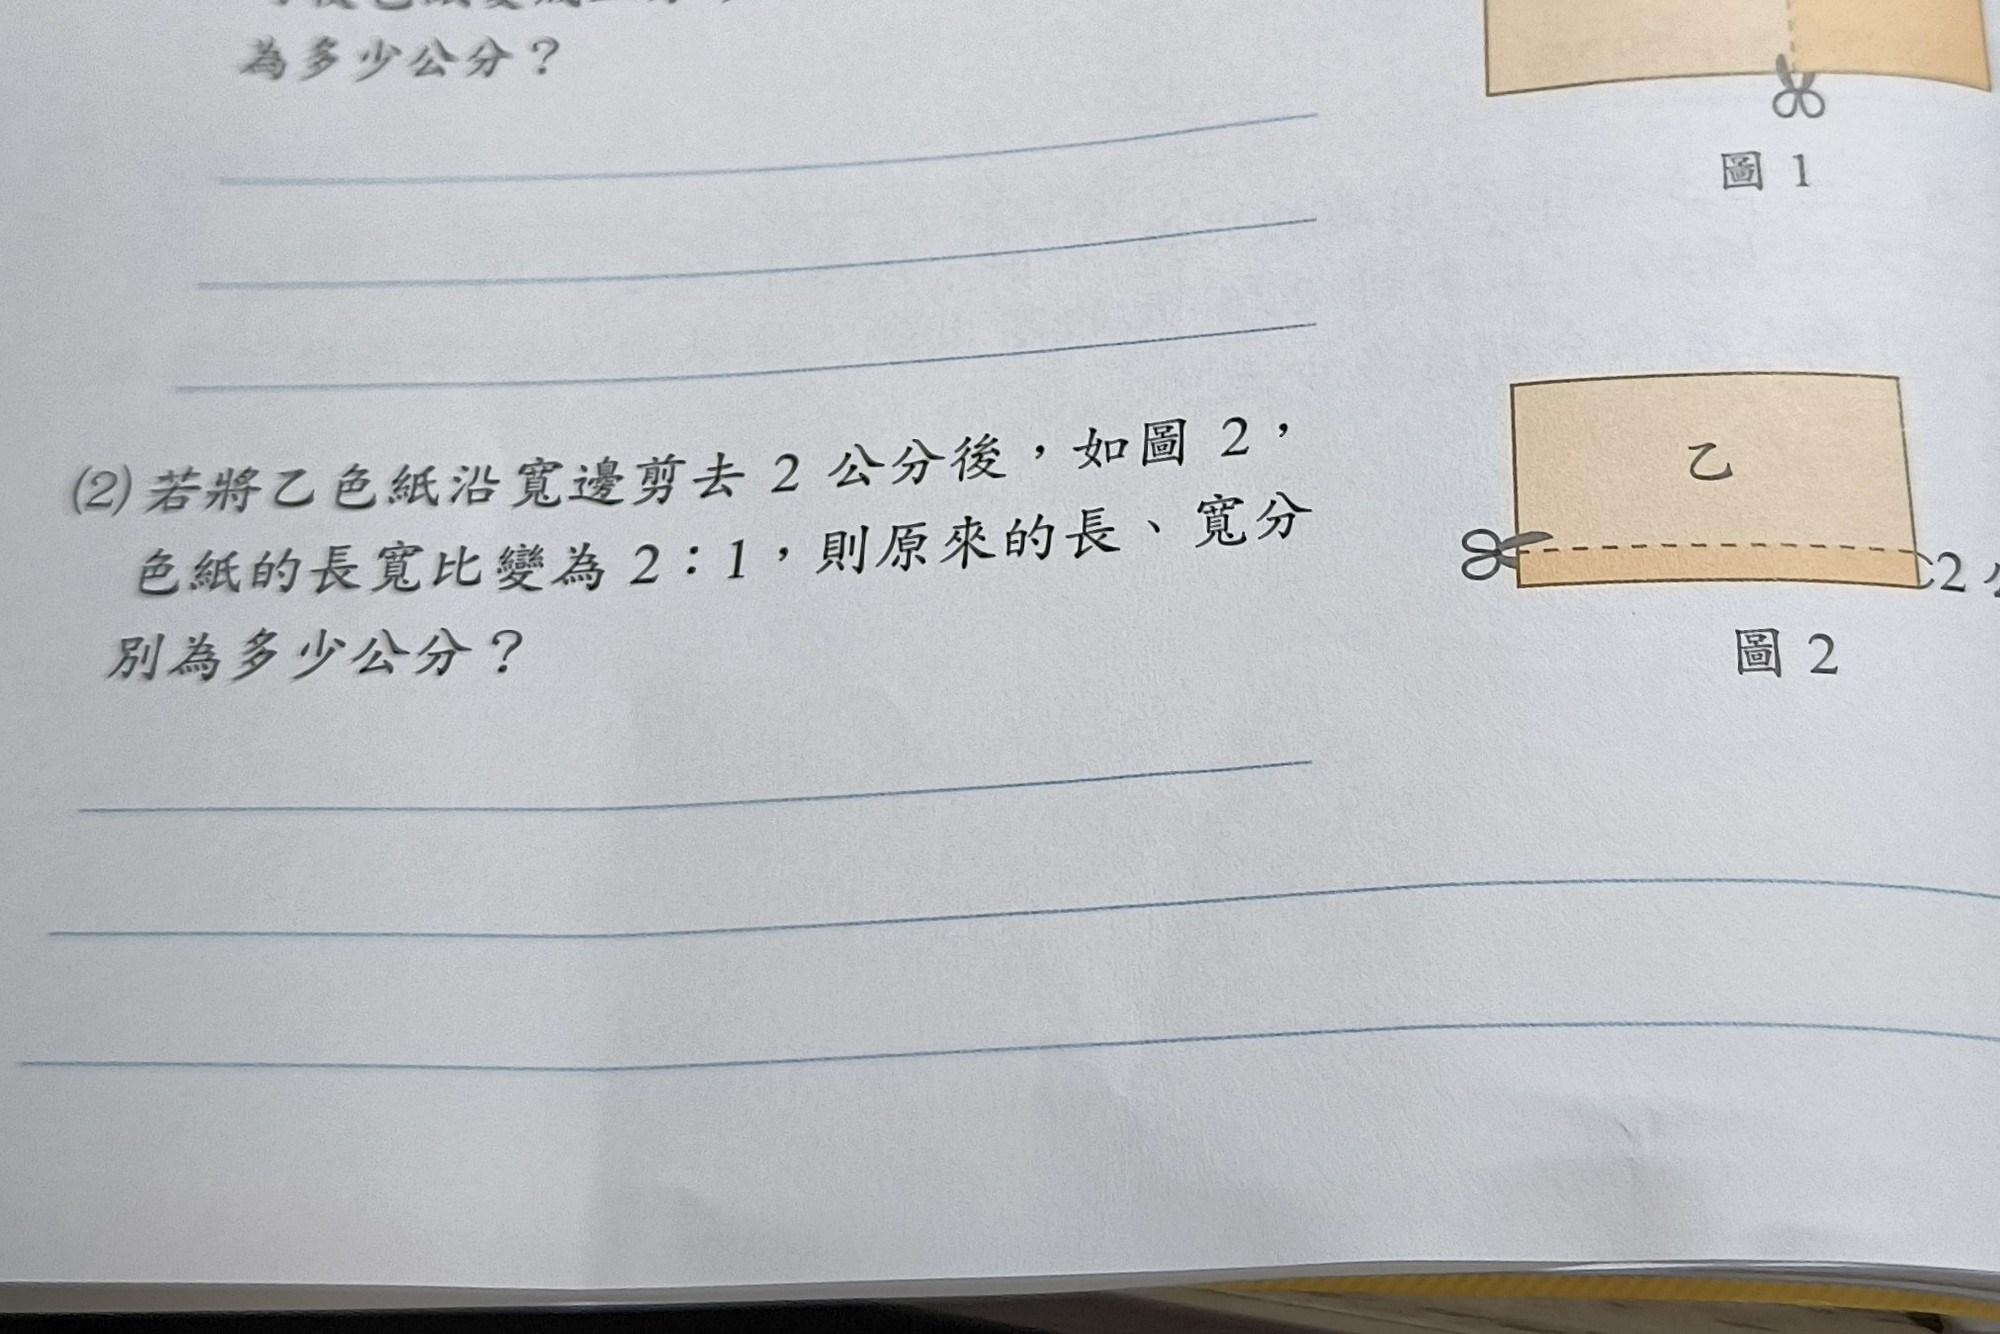 為多少公分？
圖 1
(2) 若將乙色紙沿寬邊剪去 2 公分後，如圖 2，
色紙的長寬比變為 2：1，則原來的長、寬分
別為多少公分？
乙
2
圖 2